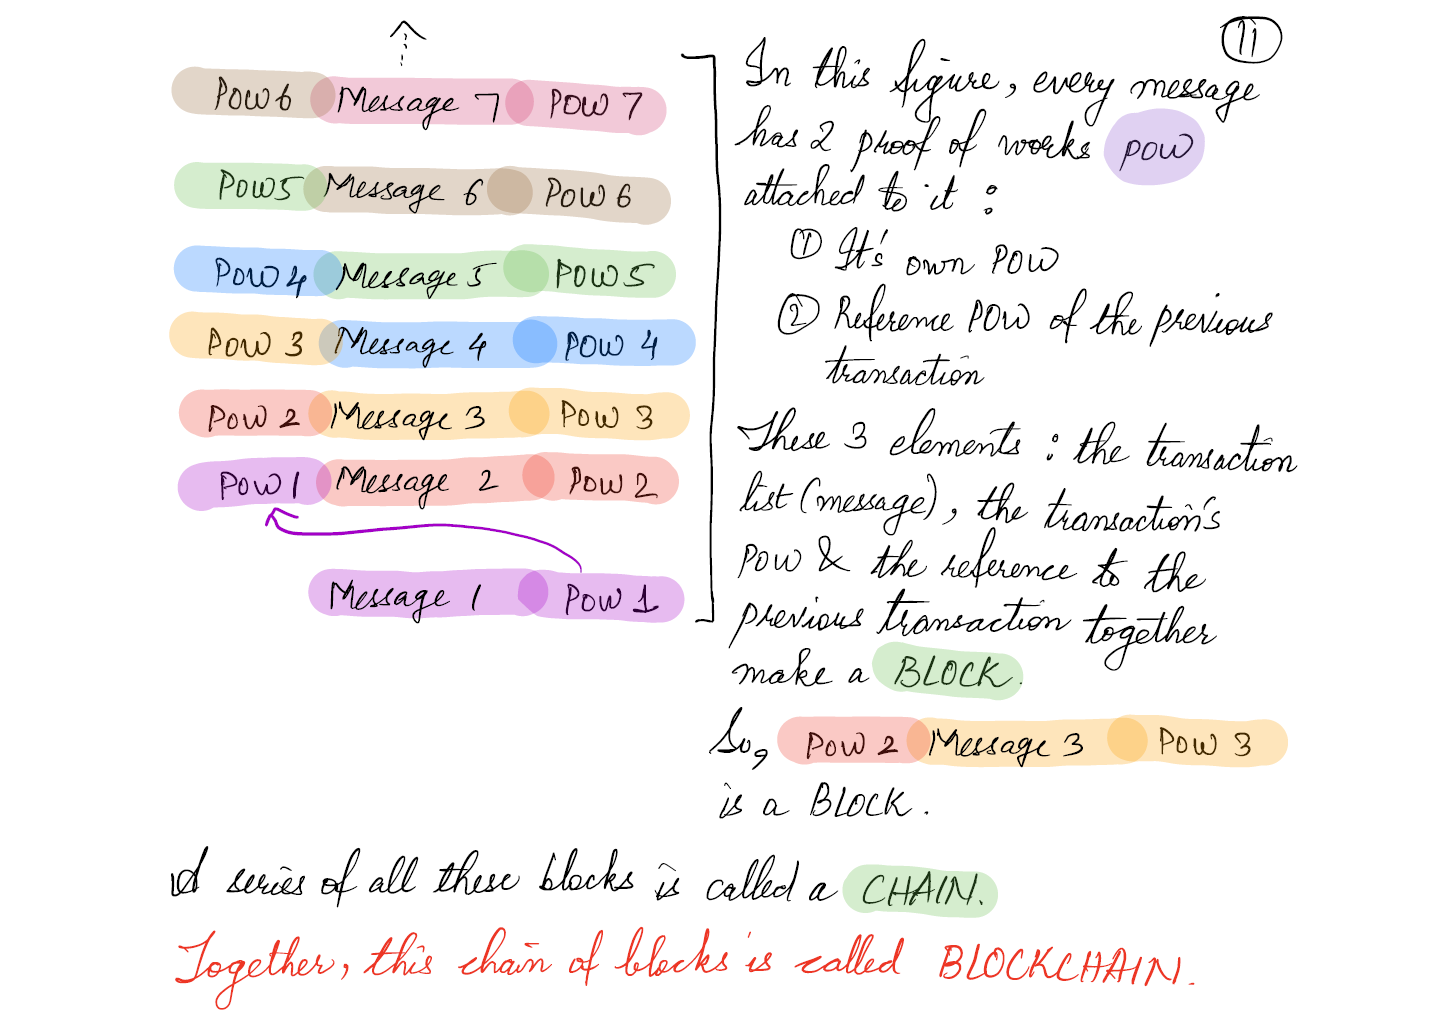 11
POW 6 Message 7 POW 7
POW 5 Message 6 POW 6
POW 4 Message 5 POW 5
POW 3 Message 4 POW 4
POW 2 Message 3 POW 3
POW 1 Message 2 POW 2
Message 1 POW 1
In this figure, every message
has 2 proof of works POW
attached to it :
① It's own POW
② Reference POW of the previous
transaction
These 3 elements : the transaction
list (message), the transaction's
POW & the reference to the
previous transaction together
make a BLOCK.
So, POW 2 Message 3 POW 3
is a BLOCK.
A series of all these blocks is called a CHAIN.
Together, this chain of blocks is called BLOCKCHAIN.